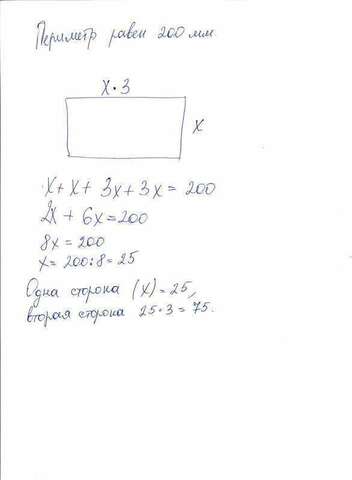 Периметр равен 200 мм.
x·3
x
x + x + 3x + 3x = 200
2x + 6x = 200
8x = 200
x = 200:8 = 25
Одна сторона (x) = 25,
вторая сторона 25·3 = 75.